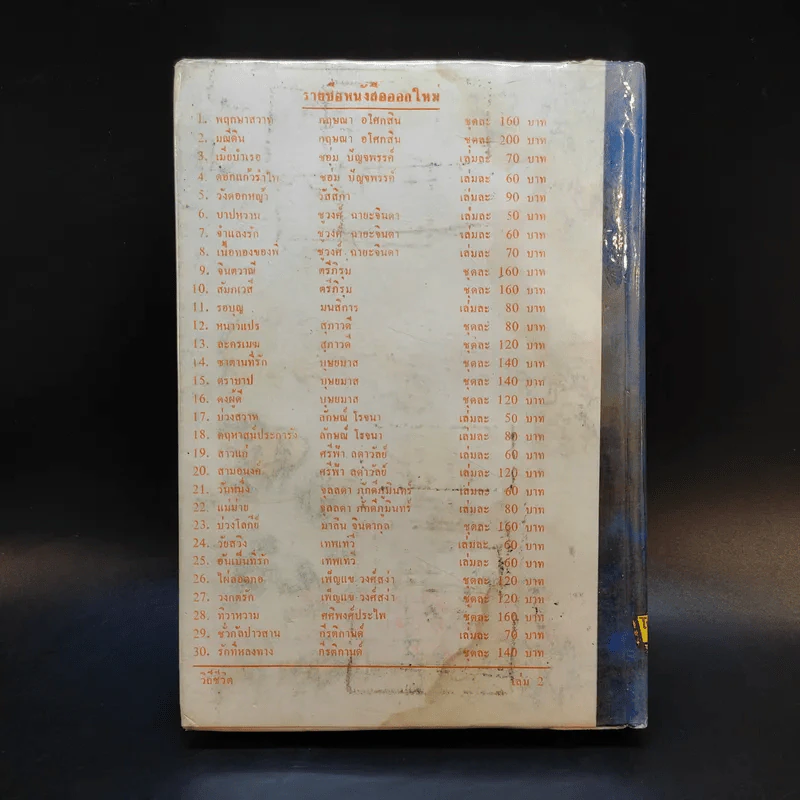 รายชื่อหนังสือออกใหม่
1. พฤกษาสวาท กฤษณา อโศกสิน ชุดละ 160 บาท
2. มณีดิน กฤษณา อโศกสิน ชุดละ 200 บาท
3. เมื่อบ่าเรอ ชอุ่ม ปัญจพรรค์ เล่มละ 70 บาท
4. ดอกแก้วรำไพ ชอุ่ม ปัญจพรรค์ เล่มละ 60 บาท
5. วังดอกหญ้า วัสสิกา เล่มละ 90 บาท
6. บาปหวาน ชูวงศ์ ฉายะจินดา เล่มละ 50 บาท
7. จำแลงรัก ชูวงศ์ ฉายะจินดา เล่มละ 60 บาท
8. เนื้อทองของพี่ ชูวงศ์ ฉายะจินดา เล่มละ 70 บาท
9. จินตวาณี ตรีภิรุม ชุดละ 160 บาท
10. สัมภเวสี ตรีภิรุม ชุดละ 160 บาท
11. รอบุญ มนสิการ เล่มละ 80 บาท
12. หนาวแปร สุภาวดี ชุดละ 80 บาท
13. ละครเมฆ สุภาวดี ชุดละ 120 บาท
14. ซาตานที่รัก บุษยมาส ชุดละ 140 บาท
15. ตราบาป บุษยมาส ชุดละ 140 บาท
16. ดงผู้ดี บุษยมาส ชุดละ 120 บาท
17. บ่วงสวาท ลักษณ์ โรจนา เล่มละ 50 บาท
18. คฤหาสน์ประการัง ลักษณ์ โรจนา เล่มละ 80 บาท
19. สาวแก่ ศรีฟ้า ลดาวัลย์ เล่มละ 60 บาท
20. สามอนงค์ ศรีฟ้า ลดาวัลย์ เล่มละ 120 บาท
21. วันหนึ่ง จุลลดา ภักดีภูมินทร์ เล่มละ 60 บาท
22. แม่ม่าย จุลลดา ภักดีภูมินทร์ เล่มละ 80 บาท
23. บ่วงโลกีย์ มาลิน จินดากุล ชุดละ 160 บาท
24. วัยสวิง เทพเทวี เล่มละ 60 บาท
25. อันเป็นที่รัก เทพเทวี เล่มละ 60 บาท
26. ไผ่ลอดกอ เพ็ญแข วงศ์สง่า ชุดละ 120 บาท
27. วงกตรัก เพ็ญแข วงศ์สง่า ชุดละ 120 บาท
28. ทิวาหวาม ศศิพงศ์ประไพ ชุดละ 160 บาท
29. ชั่วกัลปาวสาน กีรติกานต์ เล่มละ 70 บาท
30. รักที่หลงทาง กีรติกานต์ ชุดละ 140 บาท
วิถีชีวิต เล่ม 2